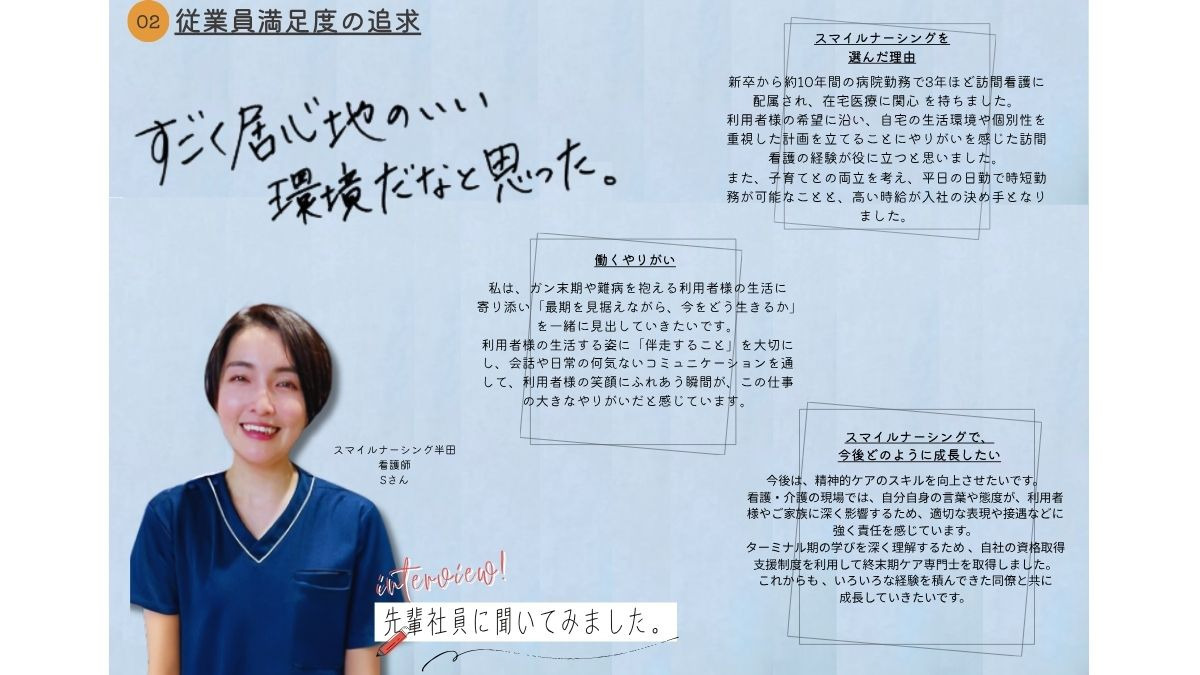 02 従業員満足度の追求
すごく居心地のいい
環境だなと思った。
スマイルナーシングを
選んだ理由
新卒から約10年間の病院勤務で3年ほど訪問看護に
配属され、在宅医療に関心 を持ちました。
利用者様の希望に沿い、自宅の生活環境や個別性を
重視した計画を立てることにやりがいを感じた訪問
看護の経験が役に立つと思いました。
また、子育てとの両立を考え、平日の日勤で時短勤
務が可能なことと、高い時給が入社の決め手となり
ました。
働くやりがい
私は、ガン末期や難病を抱える利用者様の生活に
寄り添い「最期を見据えながら、今をどう生きるか」
を一緒に見出していきたいです。
利用者様の生活する姿に「伴走すること」を大切に
し、会話や日常の何気ないコミュニケーションを通
して、利用者様の笑顔にふれあう瞬間が、この仕事
の大きなやりがいだと感じています。
スマイルナーシングで、
今後どのように成長したい
今後は、精神的ケアのスキルを向上させたいです。
看護・介護の現場では、自分自身の言葉や態度が、利用者
様やご家族に深く影響するため、適切な表現や接遇などに
強く責任を感じています。
ターミナル期の学びを深く理解するため 、自社の資格取得
支援制度を利用して終末期ケア専門士を取得しました。
これからも 、いろいろな経験を積んできた同僚と共に
成長していきたいです。
スマイルナーシング半田
看護師
Sさん
interview!
先輩社員に聞いてみました。